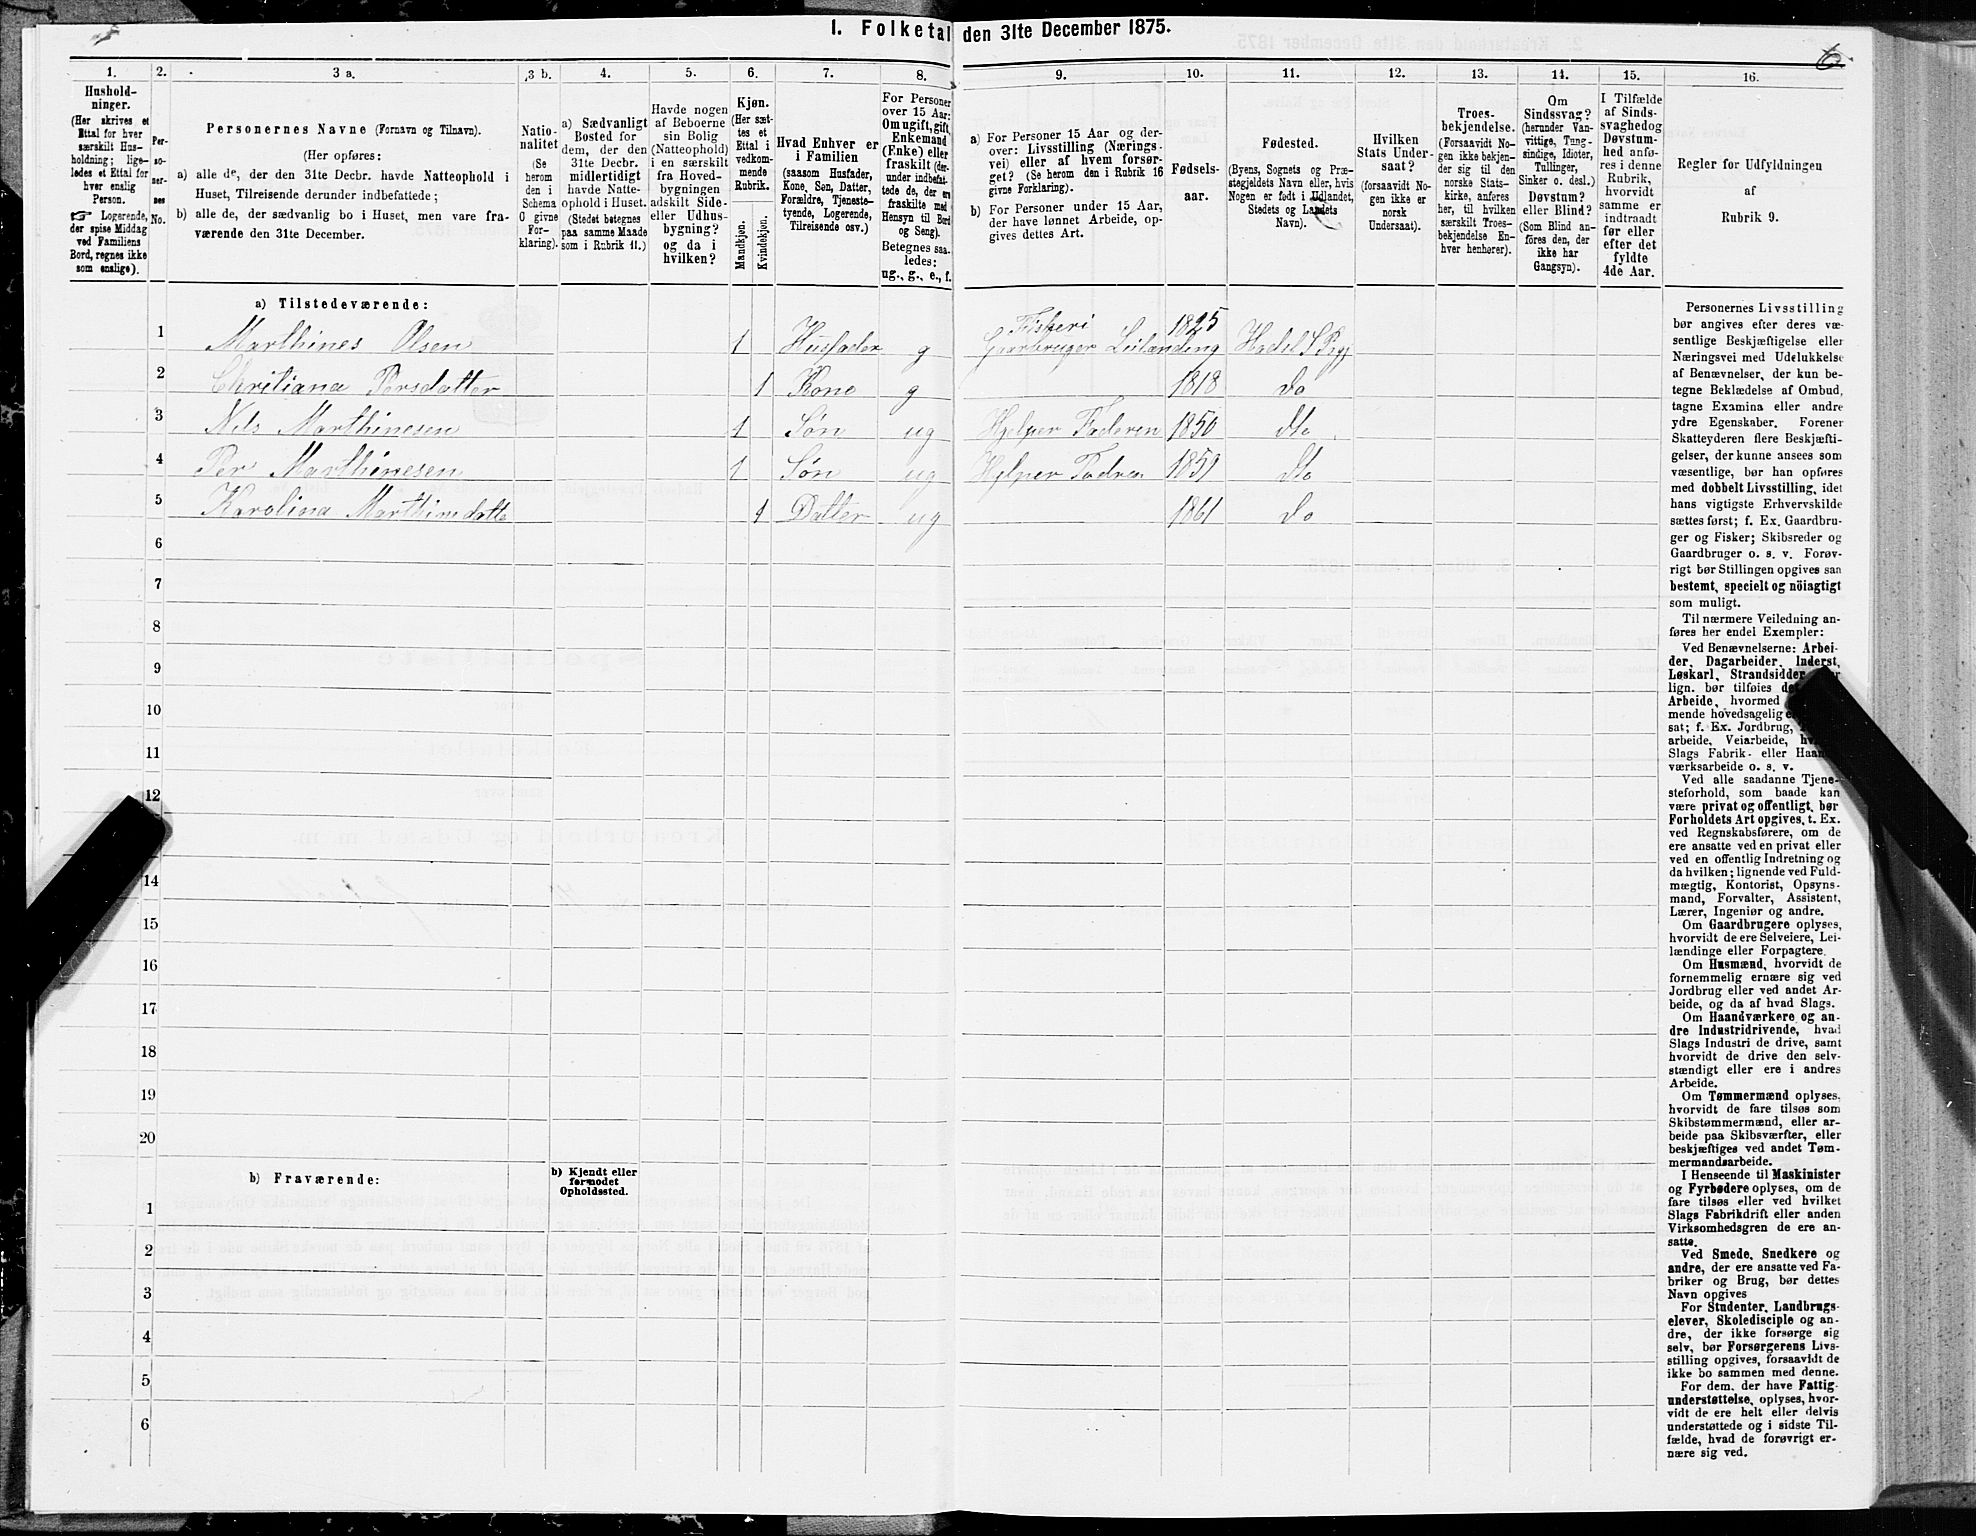 I. Folketal den 31te December 1875.
6
1.
Hushold-
ninger.
(Her skrives et
Ettal for hver
særskilt Hus-
holdning; lige-
ledes et Ettal for
hver enslig
Person.
☞ Logerende,
der spise Middag
ved Familiens
Bord, regnes ikke
som enslige).
2.
Per-
so-
ner-
nes
No.
3 a.
Personernes Navne (Fornavn og Tilnavn).
(Her opføres:
a) alle de, der den 31te Decbr. havde Natteophold i
Huset, Tilreisende derunder indbefattede;
b) alle de, der sædvanlig bo i Huset, men vare fra-
værende den 31te December.
3 b.
Natio-
nalitet
(Se
herom
den i
Schema
O givne
For-
klaring).
4.
a) Sædvanligt
Bosted for
dem, der den
31te Decbr.
midlertidigt
havde Natte-
ophold i Huset.
(Stedet betegnes
paa samme Maade
som i Rubrik 11.)
5.
Havde nogen
af Beboerne
sin Bolig
(Natteophold)
i en særskilt
fra Hoved-
bygningen
adskilt Side-
eller Udhus-
bygning?
og da i
hvilken?
6.
Kjøn.
(Her sæt-
tes et
Ettal i
vedkom-
mende
Rubrik.
Mandkjøn.
Kvindekjøn.
7.
Hvad Enhver er
i Familien
(saasom Husfader,
Kone, Søn, Datter,
Forældre, Tjeneste-
tyende, Logerende,
Tilreisende osv.)
8.
For Personer
over 15 Aar:
Om ugift, gift,
Enkemand
(Enke) eller
fraskilt (der-
under indbefat-
tede de, der ere
fraskilte med
Hensyn til Bord
og Seng).
Betegnes saa-
ledes:
ug., g., e., f.
9.
a) For Personer 15 Aar og der-
over: Livsstilling (Nærings-
vei) eller af hvem forsør-
get? (Se herom den i Rubrik 16
givne Forklaring).
b) For Personer under 15 Aar,
der have lønnet Arbeide, op-
gives dettes Art.
10.
Fødsels-
aar.
11.
Fødested.
(Byens, Sognets og Præ-
stegjeldets Navn eller, hvis
Nogen er født i Udlandet,
Stedets og Landets
Navn).
12.
Hvilken
Stats Under-
saat?
(forsaavidt No-
gen ikke er
norsk
Undersaat).
13.
Troes-
bekjendelse.
(Forsaavidt No-
gen ikke bekjen-
der sig til den
norske Stats-
kirke, anføres
her, til hvilken
særskilt Troes-
bekjendelse En-
hver henhører).
14.
Om
Sindssvag?
(herunder Van-
vittige, Tung-
sindige, Idioter,
Tullinger,
Sinker o. desl.)
Døvstum?
eller Blind?
(Som Blind an-
føres den, der
ikke har
Gangsyn).
15.
I Tilfælde
af Sinds-
svaghed og
Døvstum-
hed anfø-
res i denne
Rubrik,
hvorvidt
samme er
indtraadt
før eller
efter det
fyldte
4de Aar.
16.
Regler for Udfyldningen
af
Rubrik 9.
a) Tilstedeværende:
1 Marthines Olsen 1 Husfader g Fiskeri Gaarbruger Leilænding 1825 Hadsel S Prgj
2 Chritiana Persdatter 1 Kone g 1818 do
3 Nils Marthinesen 1 Søn ug Hjelper Faderen 1850 dto
4 Per Marthinesen 1 Søn ug Hjelper Fadren 1859 dto
5 Karolina Marthinsdatte 1 Datter ug 1861 do
6
7
8
9
10
11
12
14
15
16
17
18
19
20
b) Fraværende:
b) Kjendt eller
formodet
Opholdssted.
1
2
3
4
5
6
Personernes Livsstilling
bør angives efter deres væ-
sentlige Beskjæftigelse eller
Næringsvei med Udelukkelse
af Benævnelser, der kun be-
tegne Beklædelse af Ombud,
tagne Examina eller andre
ydre Egenskaber. Forener
Skatteyderen flere Beskjæfti-
gelser, der kunne ansees som
væsentlige, bør han opføres
med dobbelt Livsstilling, idet
hans vigtigste Erhvervskilde
sættes først; f. Ex. Gaardbru-
ger og Fisker; Skibsreder og
Gaardbruger o. s. v. Forøv-
rigt bør Stillingen opgives saa
bestemt, specielt og nöiagtigt
som muligt.
Til nærmere Veiledning an-
føres her endel Exempler:
Ved Benævnelserne: Arbei-
der, Dagarbeider, Inderst,
Løskarl, Strandsidder
lign. bør tilføies
Arbeide, hvormed
mende hovedsagelig
sat; f. Ex. Jordbrug,
arbeide, Veiarbeide,
Slags Fabrik- eller Haand-
værksarbeide o. s. v.
Ved alle saadanne Tjene-
steforhold, som baade kan
være privat og offentligt, bør
Forholdets Art opgives, t. Ex.
ved Regnskabsførere, om de
ere ansatte ved en privat eller
ved en offentlig Indretning og
da hvilken; lignende ved Fuld-
mægtig, Kontorist, Opsyns-
mand, Forvalter, Assistent,
Lærer, Ingeniør og andre.
Om Gaardbrugere oplyses,
hvorvidt de ere Selveiere, Lei-
lændinge eller Forpagtere.
Om Husmænd, hvorvidt de
fornemmelig ernære sig ved
Jordbrug eller ved andet Ar-
beide, og da af hvad Slags.
Om Haandværkere og an-
dre Industridrivende, hvad
Slags Industri de drive, samt
hvorvidt de drive den selv-
stændigt eller ere i andres
Arbeide.
Om Tømmermænd oplyses,
hvorvidt de fare tilsøs som
Skibstømmermænd, eller ar-
beide paa Skibsværfter, eller
beskjæftiges ved andet Tøm-
mermandsarbeide.
I Henseende til Maskinister
og Fyrbødere oplyses, om de
fare tilsøs eller ved hvilket
Slags Fabrikdrift eller anden
Virksomhedsgren de ere an-
satte.
Ved Smede, Snedkere og
andre, der ere ansatte ved Fa-
briker og Brug, bør dettes
Navn opgives
For Studenter, Landbrugs-
elever, Skoledisciple og an-
dre, der ikke forsørge sig
selv, bør Forsørgerens Livs-
stilling opgives, forsaavidt de
ikke bo sammen med denne.
For dem, der have Fattig-
understøttelse, oplyses, hvor-
vidt de ere helt eller delvis
understøttede og i sidste Til-
fælde, hvad de forøvrigt er-
nære sig ved.